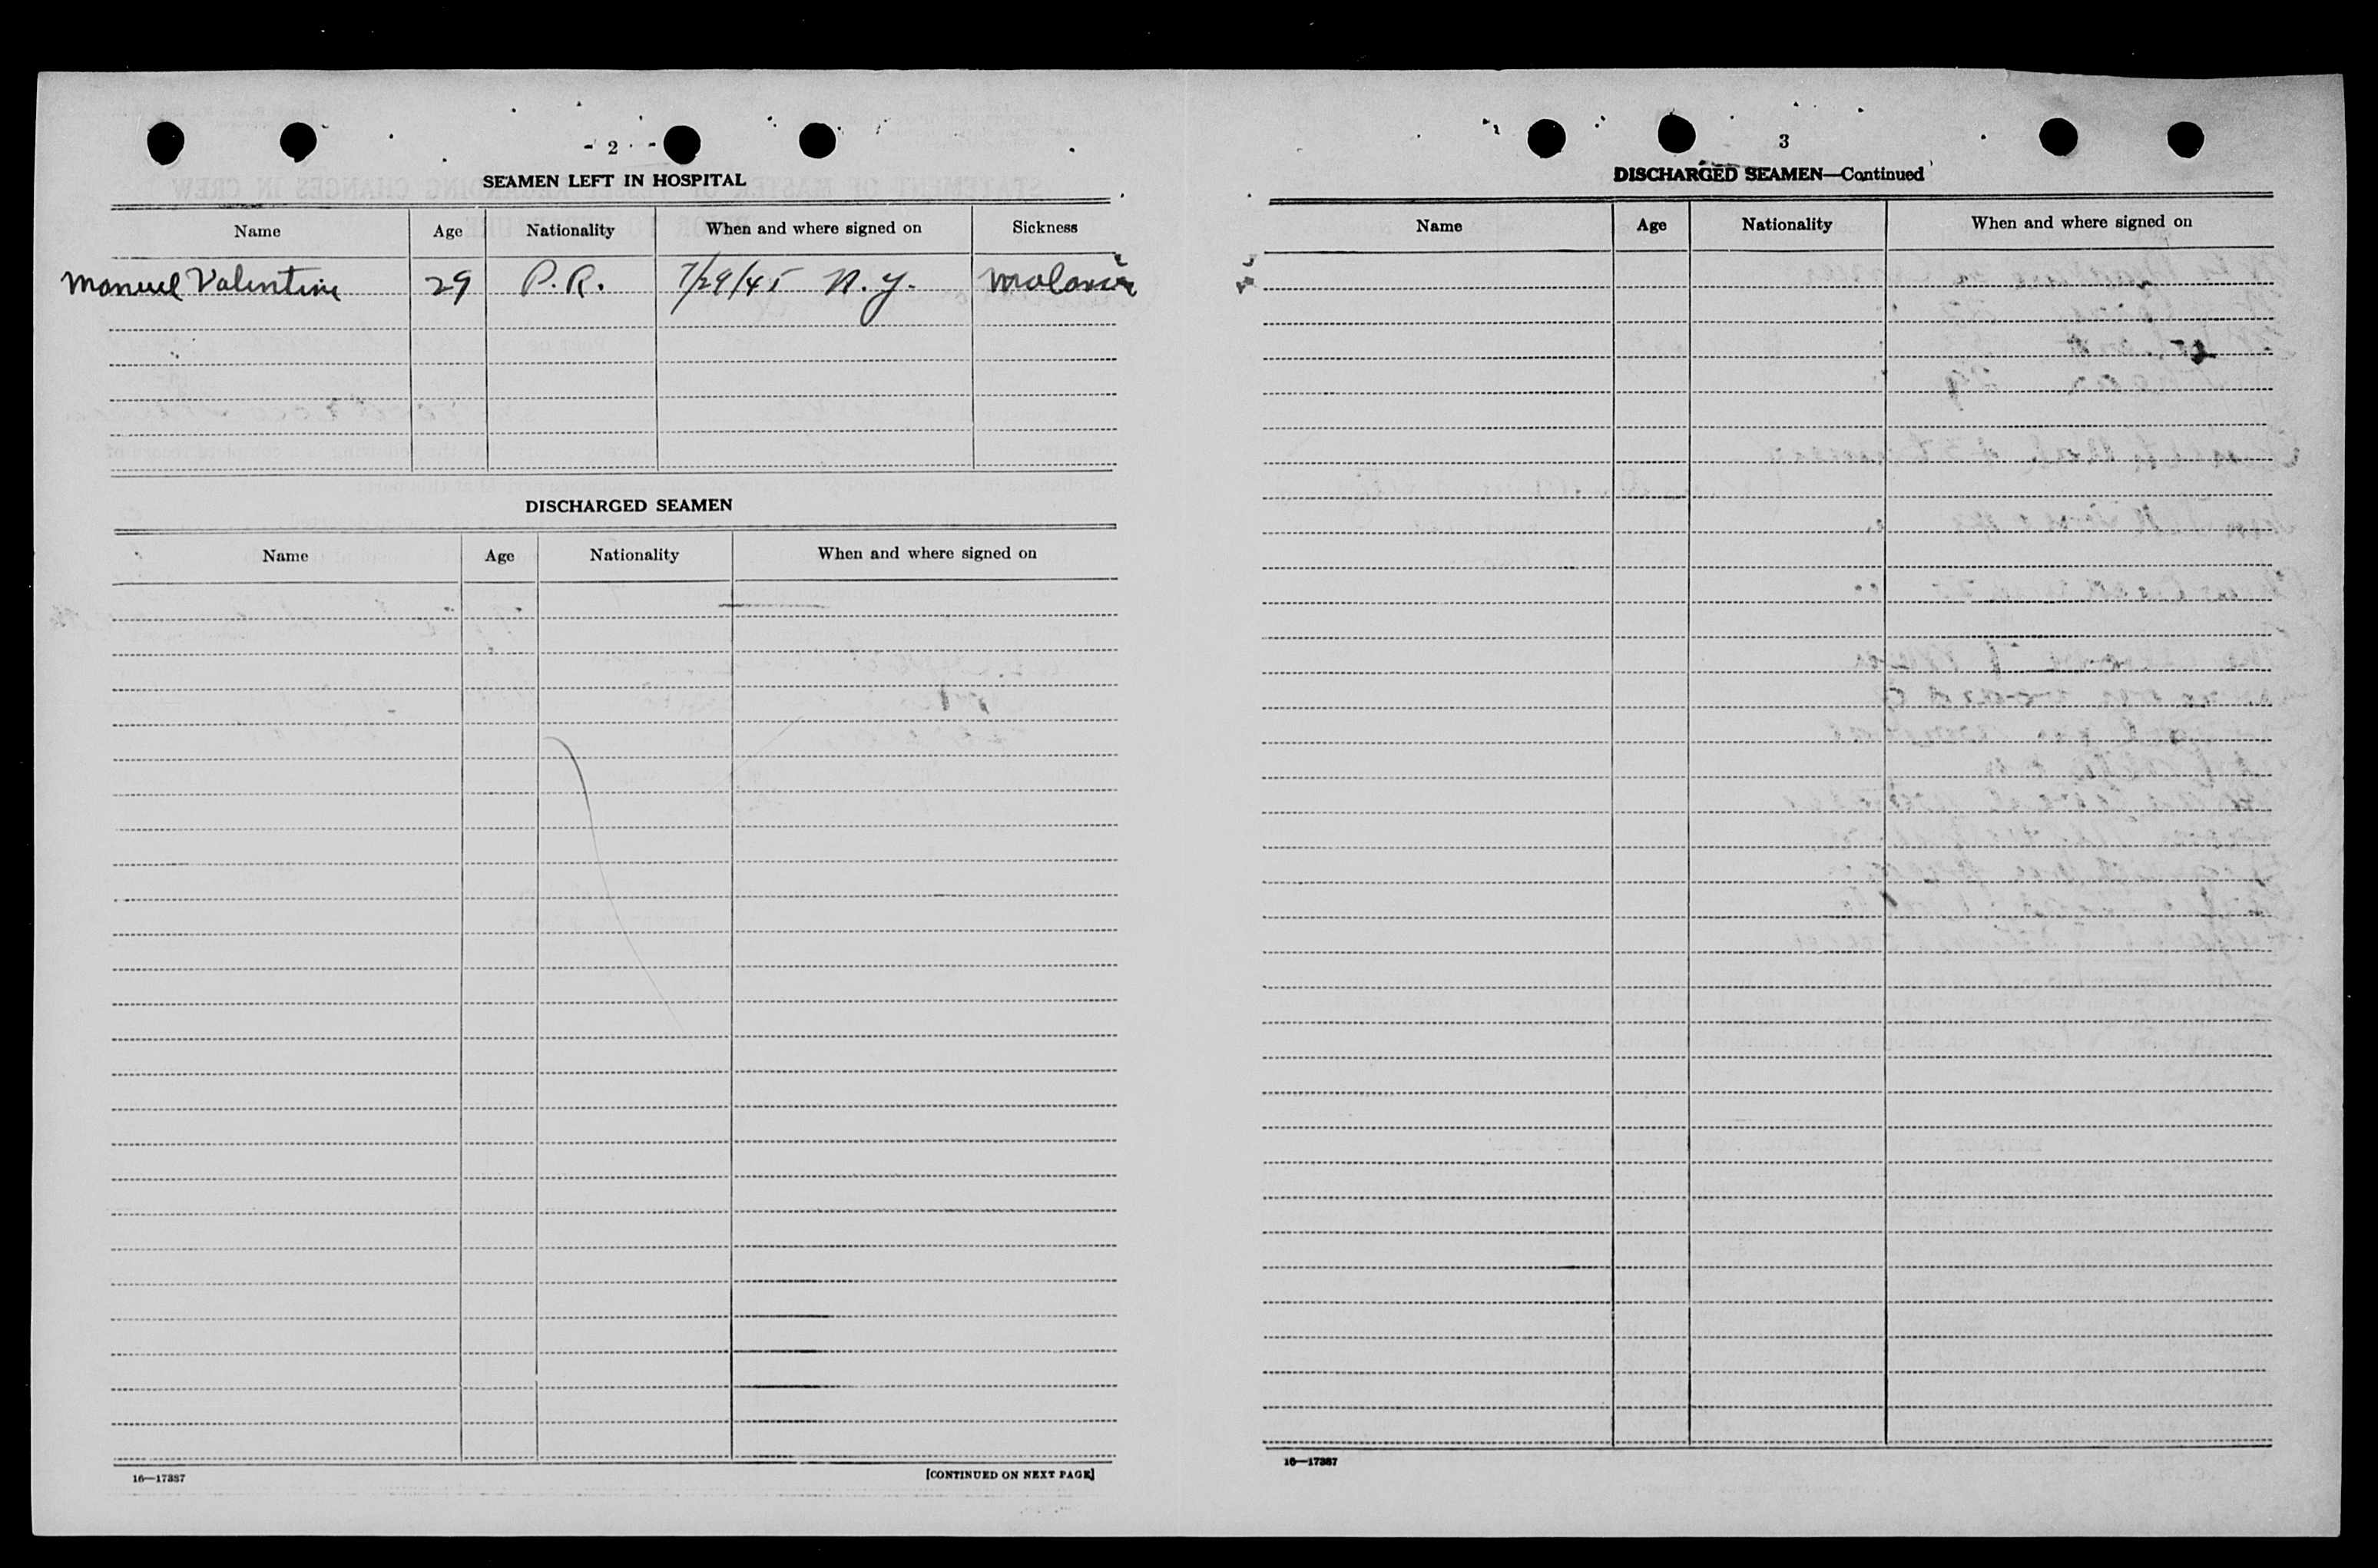 - 2 -
SEAMEN LEFT IN HOSPITAL
Name Age Nationality When and where signed on Sickness
Manuel Valentine 29 P.R. 7/29/45 N.Y. Malaria
DISCHARGED SEAMEN
Name Age Nationality When and where signed on
16—17387
[CONTINUED ON NEXT PAGE]
3
DISCHARGED SEAMEN—Continued
Name Age Nationality When and where signed on
16—17387